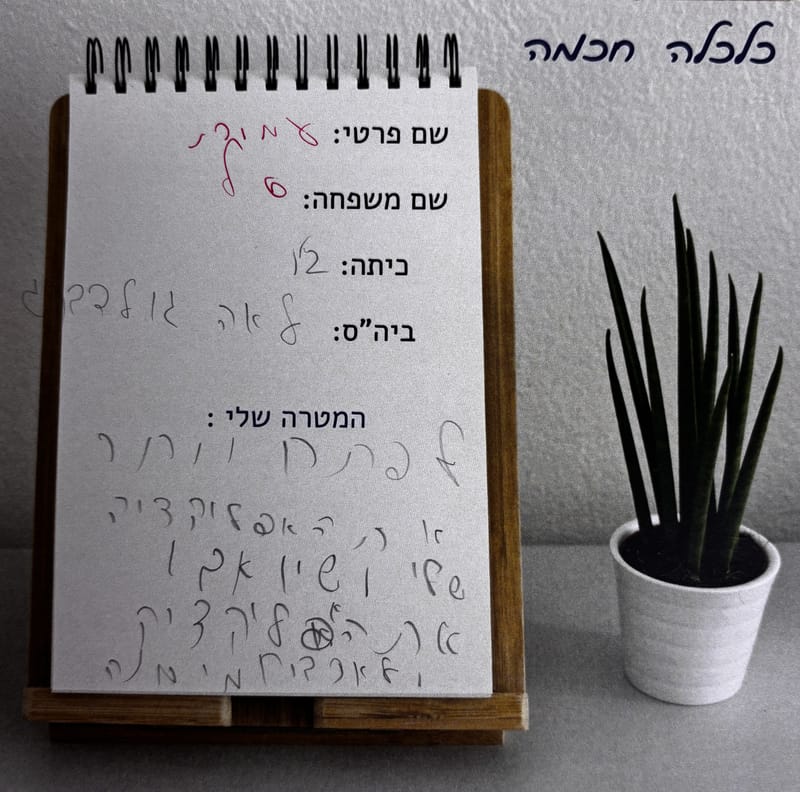 כלכלה חכמה
שם פרטי: עמית
שם משפחה: טל
כיתה: ב'1
ביה"ס: לאה גולדברג
המטרה שלי :
לפתח יותר
את האפליקציה
שלי ושיואבו
את האפליקציק
ולארביח מימנה